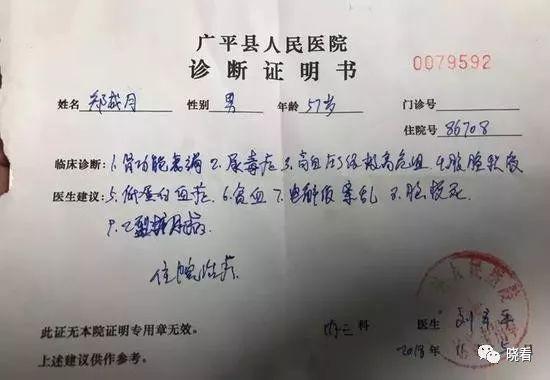 广平县人民医院
诊断证明书
0079592
姓名 郑成月 性别 男 年龄 57岁 门诊号
住院号 86708
临床诊断：1.肾功能衰竭 2.尿毒症 3.高血压3级极高危组 4.胸腔积液
医生建议：5.低蛋白血症 6.贫血 7.电解质紊乱 8.脑梗死
9.2型糖尿病
住院治疗
此证无本院证明专用章无效。
上述建议供作参考。
内三科 医生
2018年
人民医院
晓看